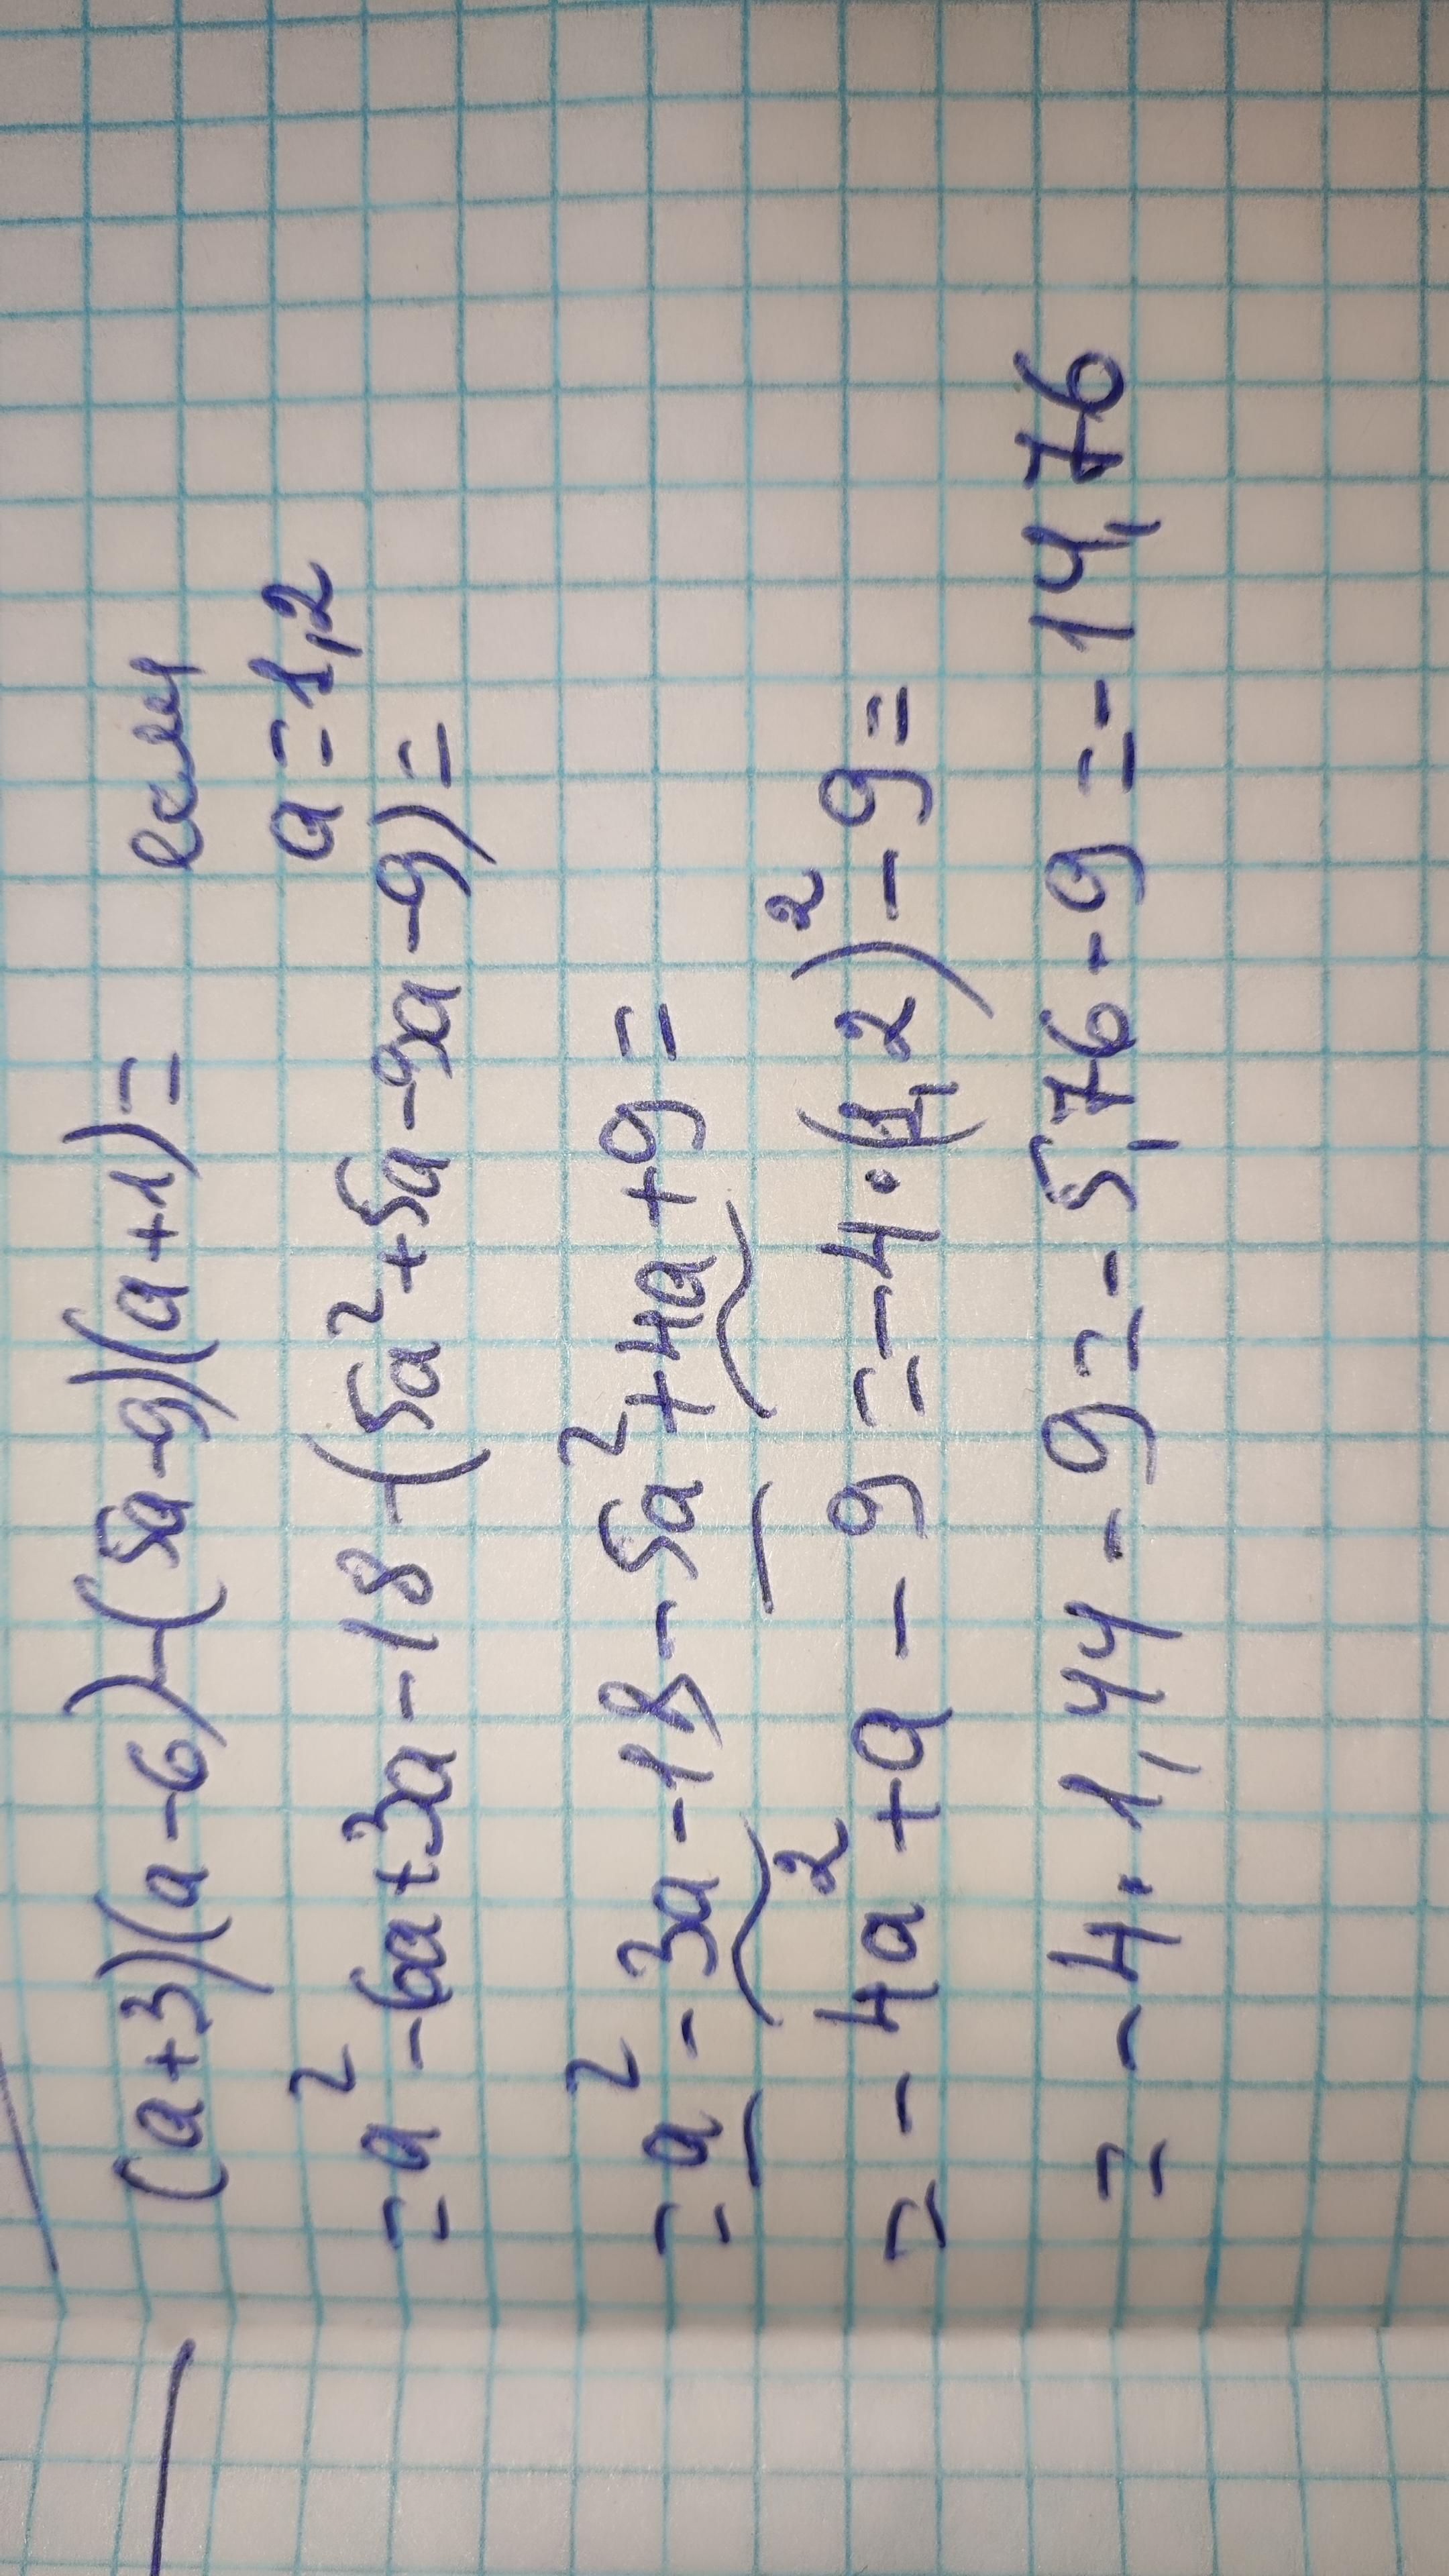 (a+3)(a-6)-(5a-9)(a+1)= если
a=1,2
=a²-6a+3a-18-(5a²+5a-9a-9)=
=a²-3a-18-5a²+4a+9=
=-4a²+a-9=-4·(1,2)²-9=
=-4·1,44-9=-5,76-9=-14,76